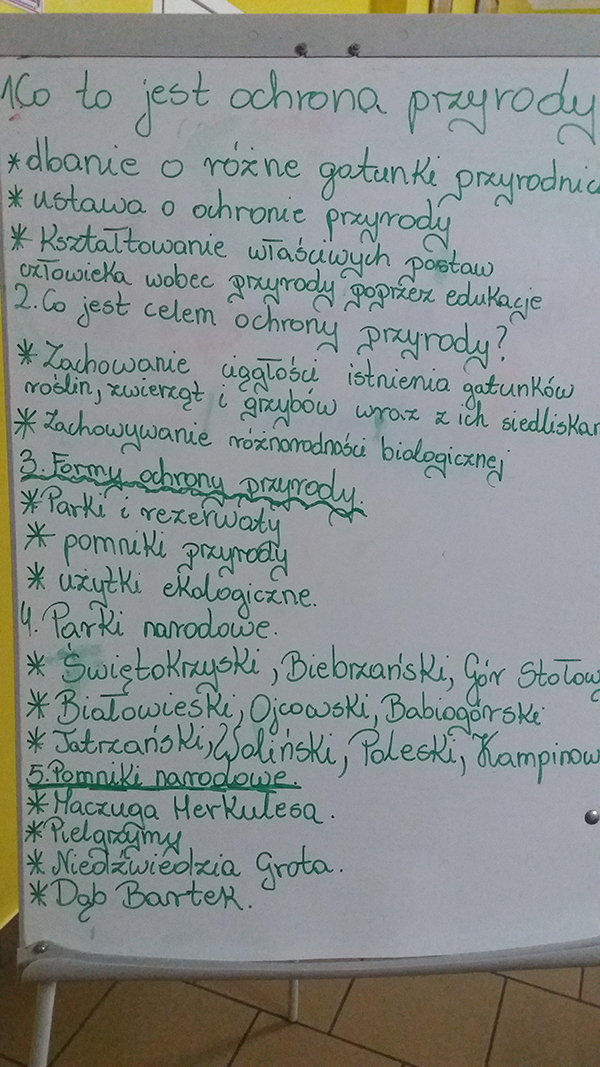 1Co to jest ochrona przyrody
*dbanie o różne gatunki przyrodnic
* ustawa o ochronie przyrody
* Kształtowanie właściwych postaw
człowieka wobec przyrody poprzez edukacje
2. Co jest celem ochrony przyrody?
* Zachowanie ciągłości istnienia gatunków
roślin, zwierząt i grzybów wraz z ich siedliskam
* Zachowywanie różnorodności biologicznej
3. Formy ochrony przyrody.
* Parki i rezerwaty
* pomniki przyrody
* użytki ekologiczne.
4. Parki narodowe.
* Świętokrzyski, Biebrzański, Gór Stołow
* Białowieski, Ojcowski, Babiogórski
* Tatrzański, Woliński, Poleski, Kampinow
5. Pomniki narodowe.
* Maczuga Herkulesa.
* Pielgrzymy
* Niedźwiedzia Grota.
* Dąb Bartek.